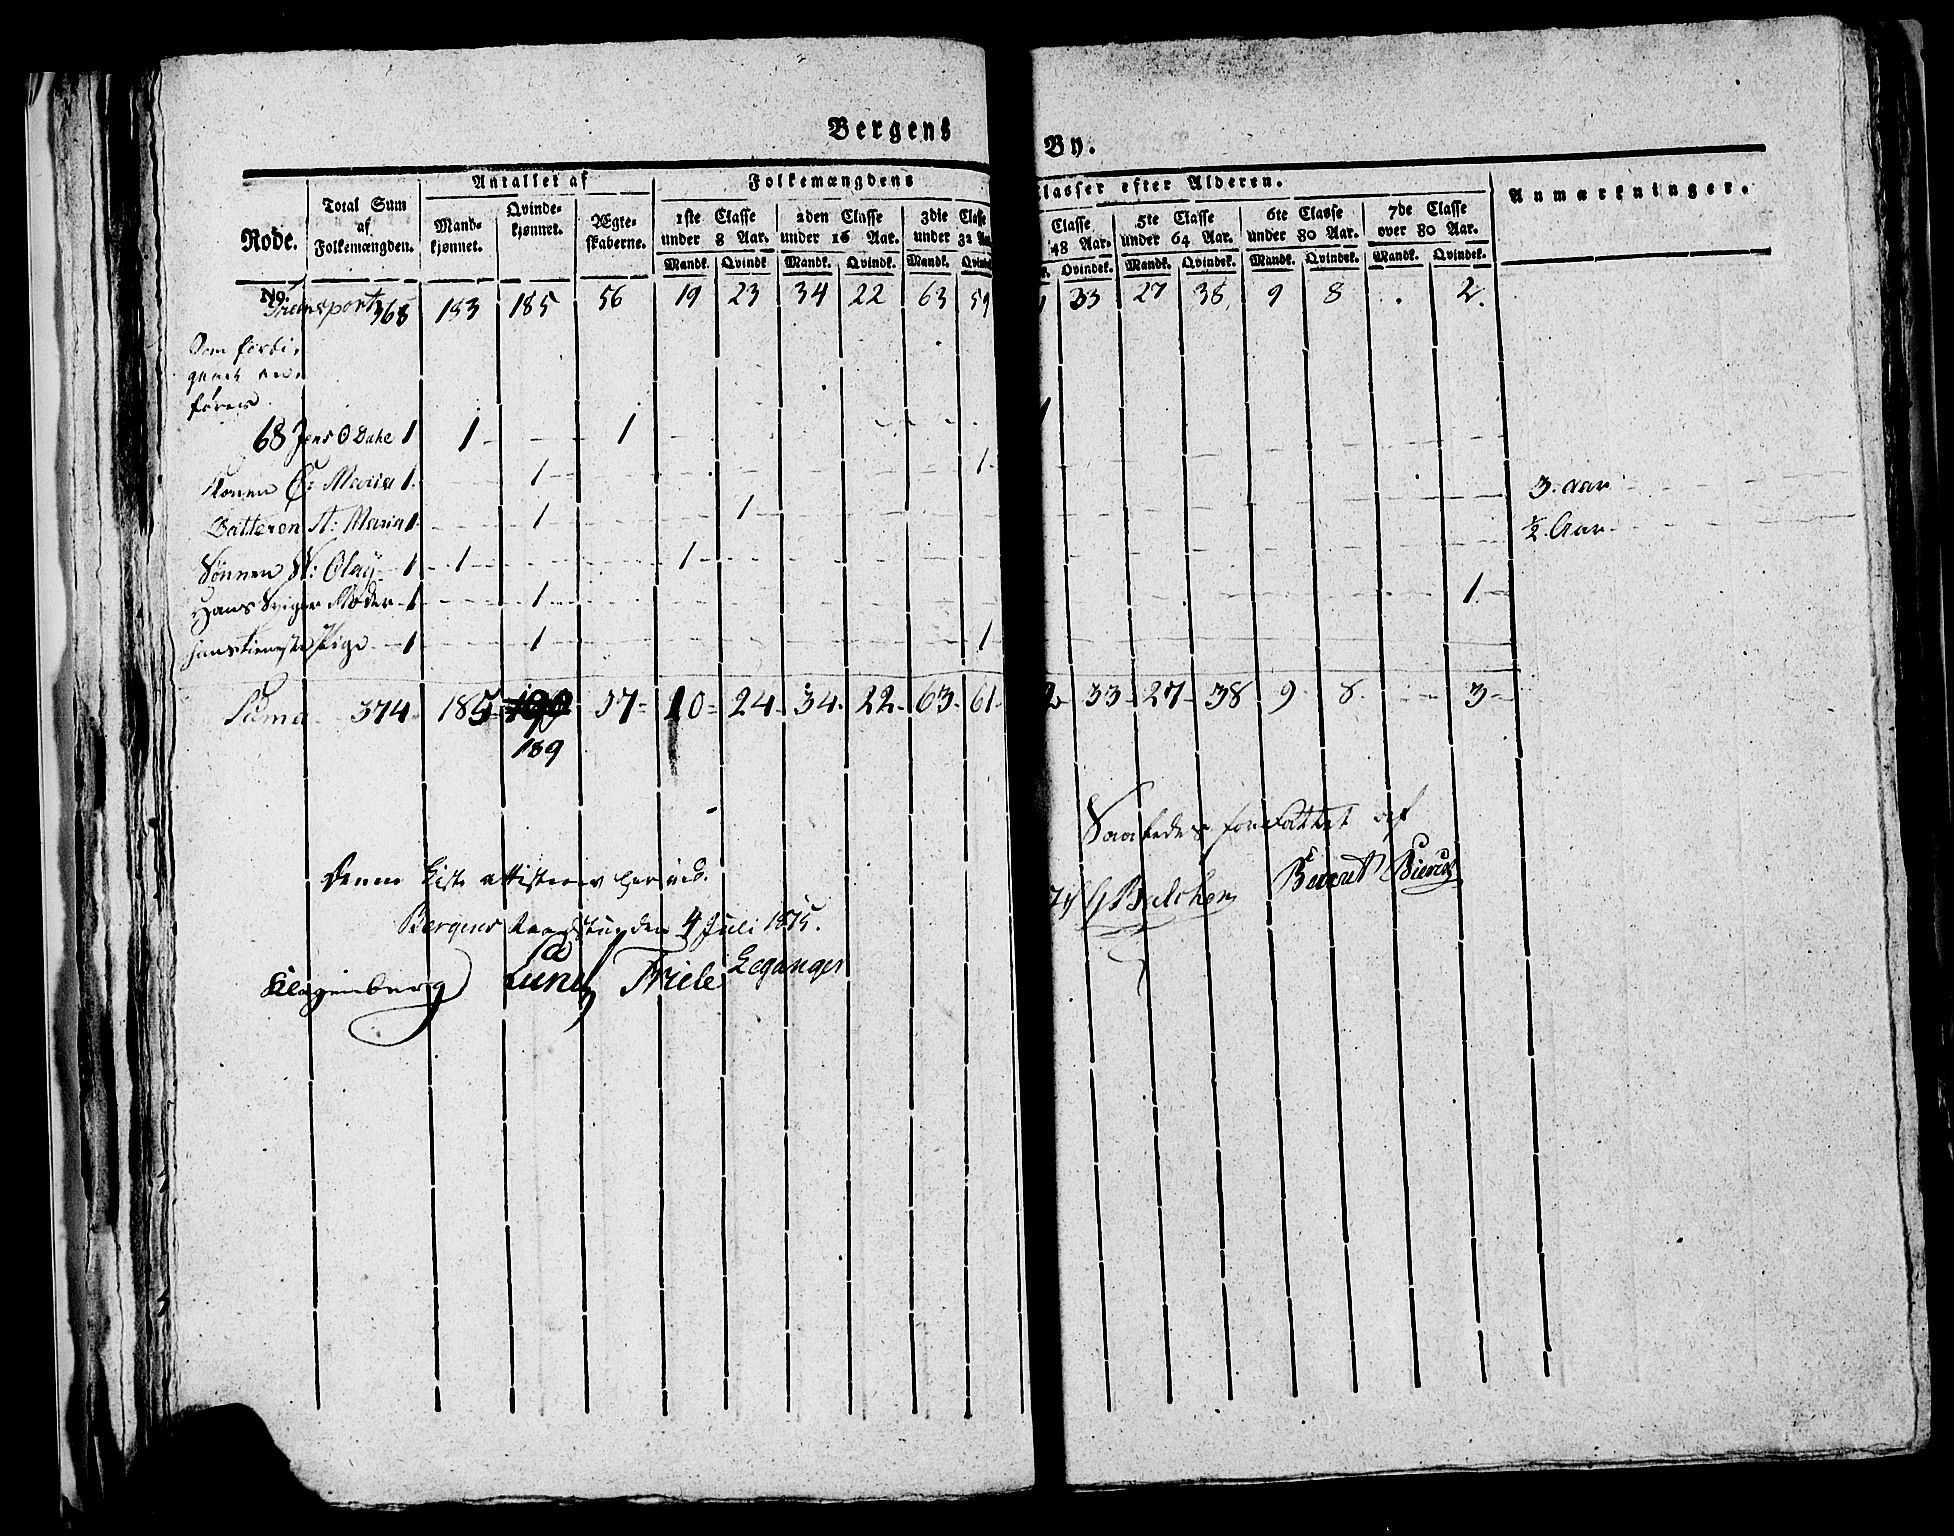 Bergens By.
Antallet af Folkemængdens Classer efter Alderen. Anmærkninger.
Rode. Total Sum af Folkemængden. Mandkjønnet. Qvindekjønnet. Ægteskaberne. 1ste Classe under 8 Aar. 2den Classe under 16 Aar. 3die Classe under 32 Aar. Classe 48 Aar. 5te Classe under 64 Aar. 6te Classe under 80 Aar. 7de Classe over 80 Aar.
Mandk. Qvindk. Mandk. Qvindk. Mandk. Qvindk. Qvindek. Mandk. Qvindek. Mandk. Qvindek. Mandk. Qvindek.
No.
Transport 368 183 185 56 19 23 34 22 63 59 33 27 38 9 8 . 2.
Som forbigaaet anføres
68 Jens O Dahe 1 1 1 1
Konen C: Maria 1. 1 1.
Datteren A: Maria 1 1 1 3. aar
Sønnen N: Olay 1 1 1 ½ Aar
Hans Sviger Moder 1 1 1.
hans tieneste Pige 1 1 1
Suma 374 185 190 57 20 24 34 22 63 61 2 33 27 38 9 8. 3
189
Saaledes forfattet af
Denne Liste attisteres herved.
Balchen Berent
Bergens Raadstuen den 4 Juli 1815.
Klagenberg Lund Friele Leganger